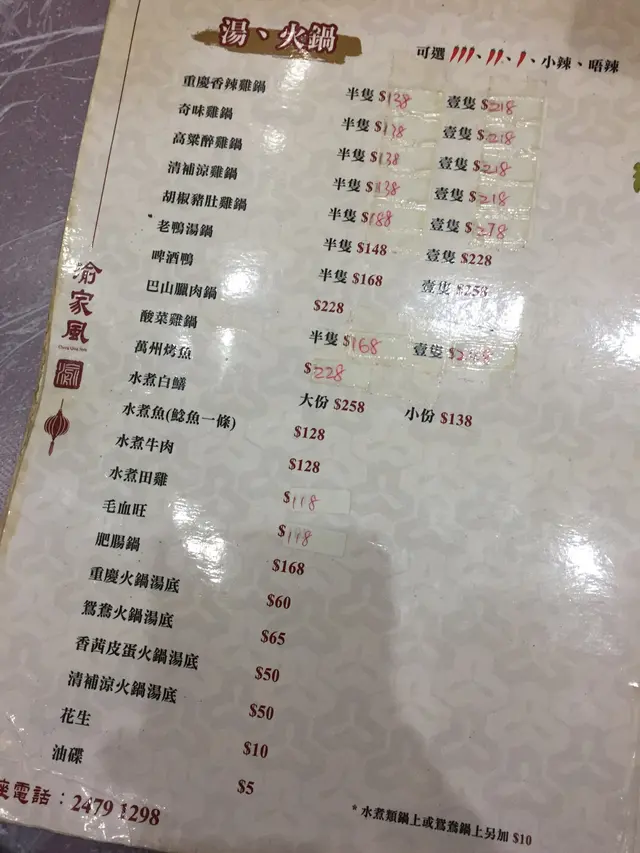 湯、火鍋
可選 、 、 、小辣、唔辣
重慶香辣雞鍋 半隻 $138 壹隻 $218
奇味雞鍋 半隻 $138 壹隻 $218
高粱醉雞鍋 半隻 $138 壹隻 $218
清補涼雞鍋 半隻 $138 壹隻 $218
胡椒豬肚雞鍋 半隻 $188 壹隻 $278
老鴨湯鍋 半隻 $148 壹隻 $228
啤酒鴨 半隻 $168 壹隻 $258
巴山臘肉鍋 $228
酸菜雞鍋 半隻 $168 壹隻
萬州烤魚 $228
水煮白鱔 大份 $258 小份 $138
水煮魚(鯰魚一條) $128
水煮牛肉 $128
水煮田雞 $118
毛血旺
肥腸鍋 $168
重慶火鍋湯底 $60
鴛鴦火鍋湯底 $65
香茜皮蛋火鍋湯底 $50
清補涼火鍋湯底 $50
花生 $10
油碟 $5
渝家風
座電話：2479 1298
* 水煮類鍋上或鴛鴦鍋上另加 $10